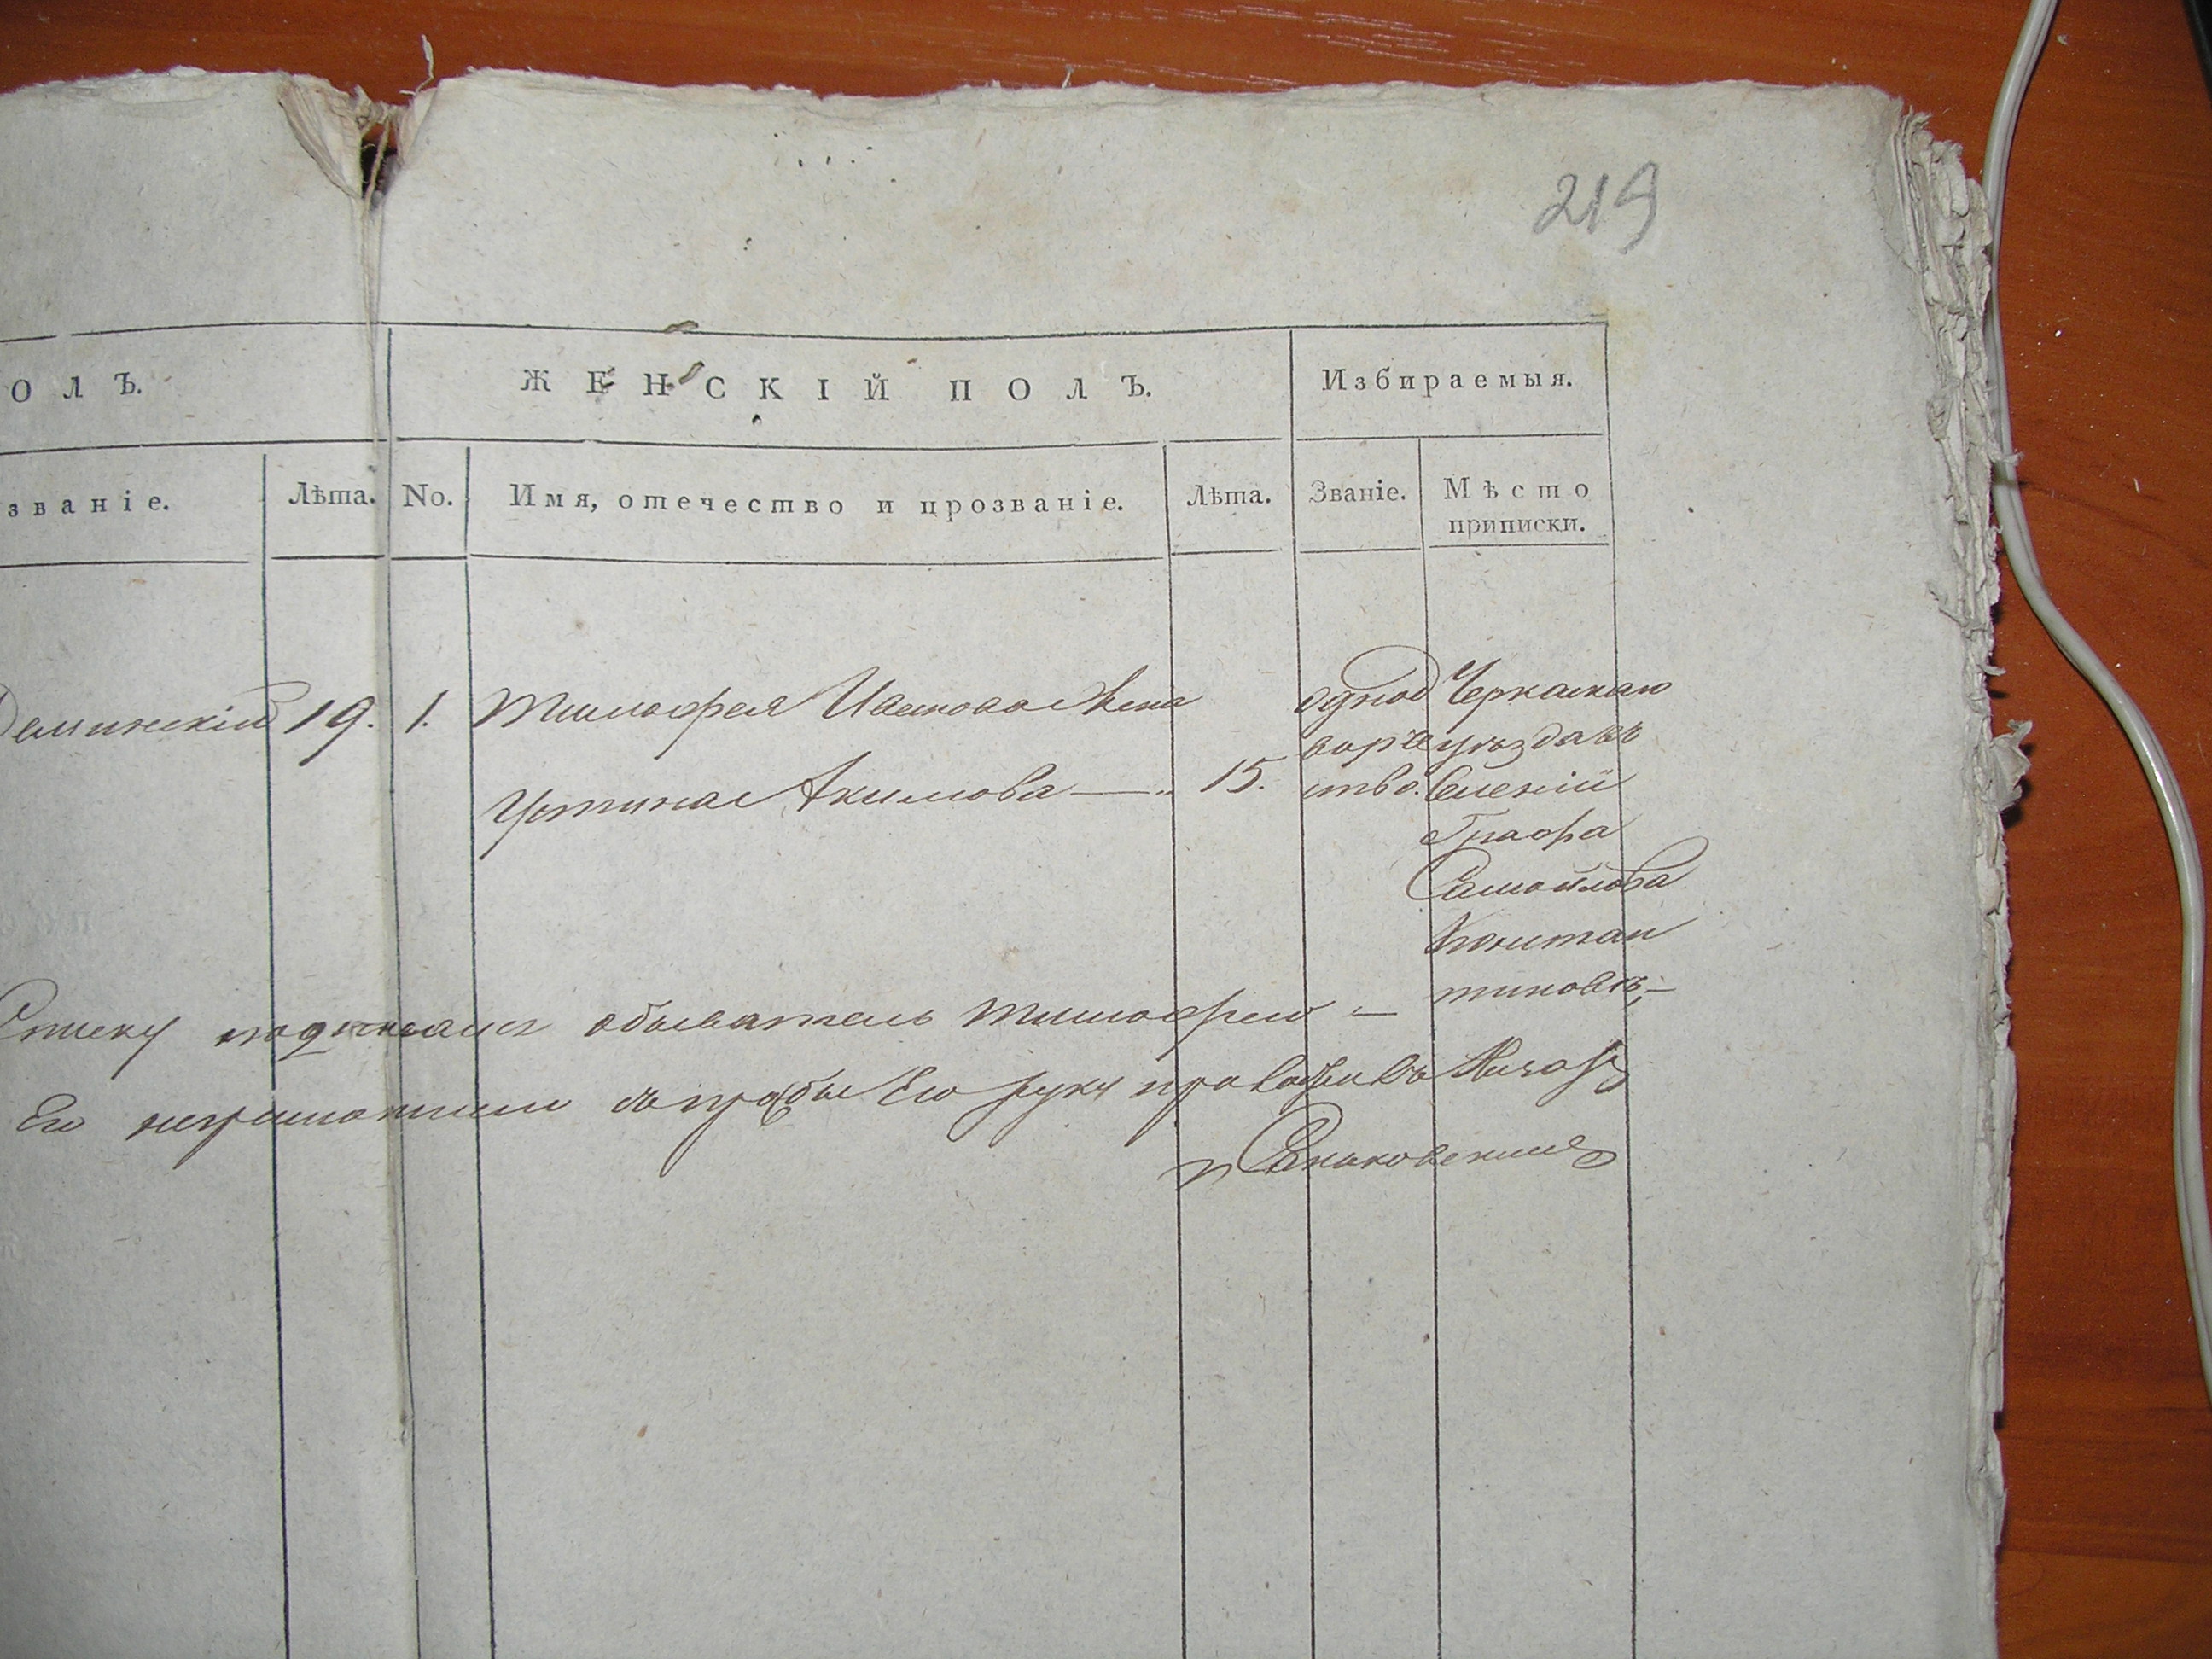 219
ОЛЪ.
ЖЕНСКІЙ ПОЛЪ.
Избираемыя.
званіе.
Лѣта.
No.
Имя, отечество и прозваніе.
Лѣта.
Званіе.
Мѣсто
приписки.
19.
1.
Тимофея Жена
Устина Акимова —
15.
однод
ворче
ство.
Черкаскаго
уѣзда въ
Селеній
Графа
Самойлова
Констан
тиновкѣ,—
Списку обыватель Тимофей —
Его неграмотнаго Его руку